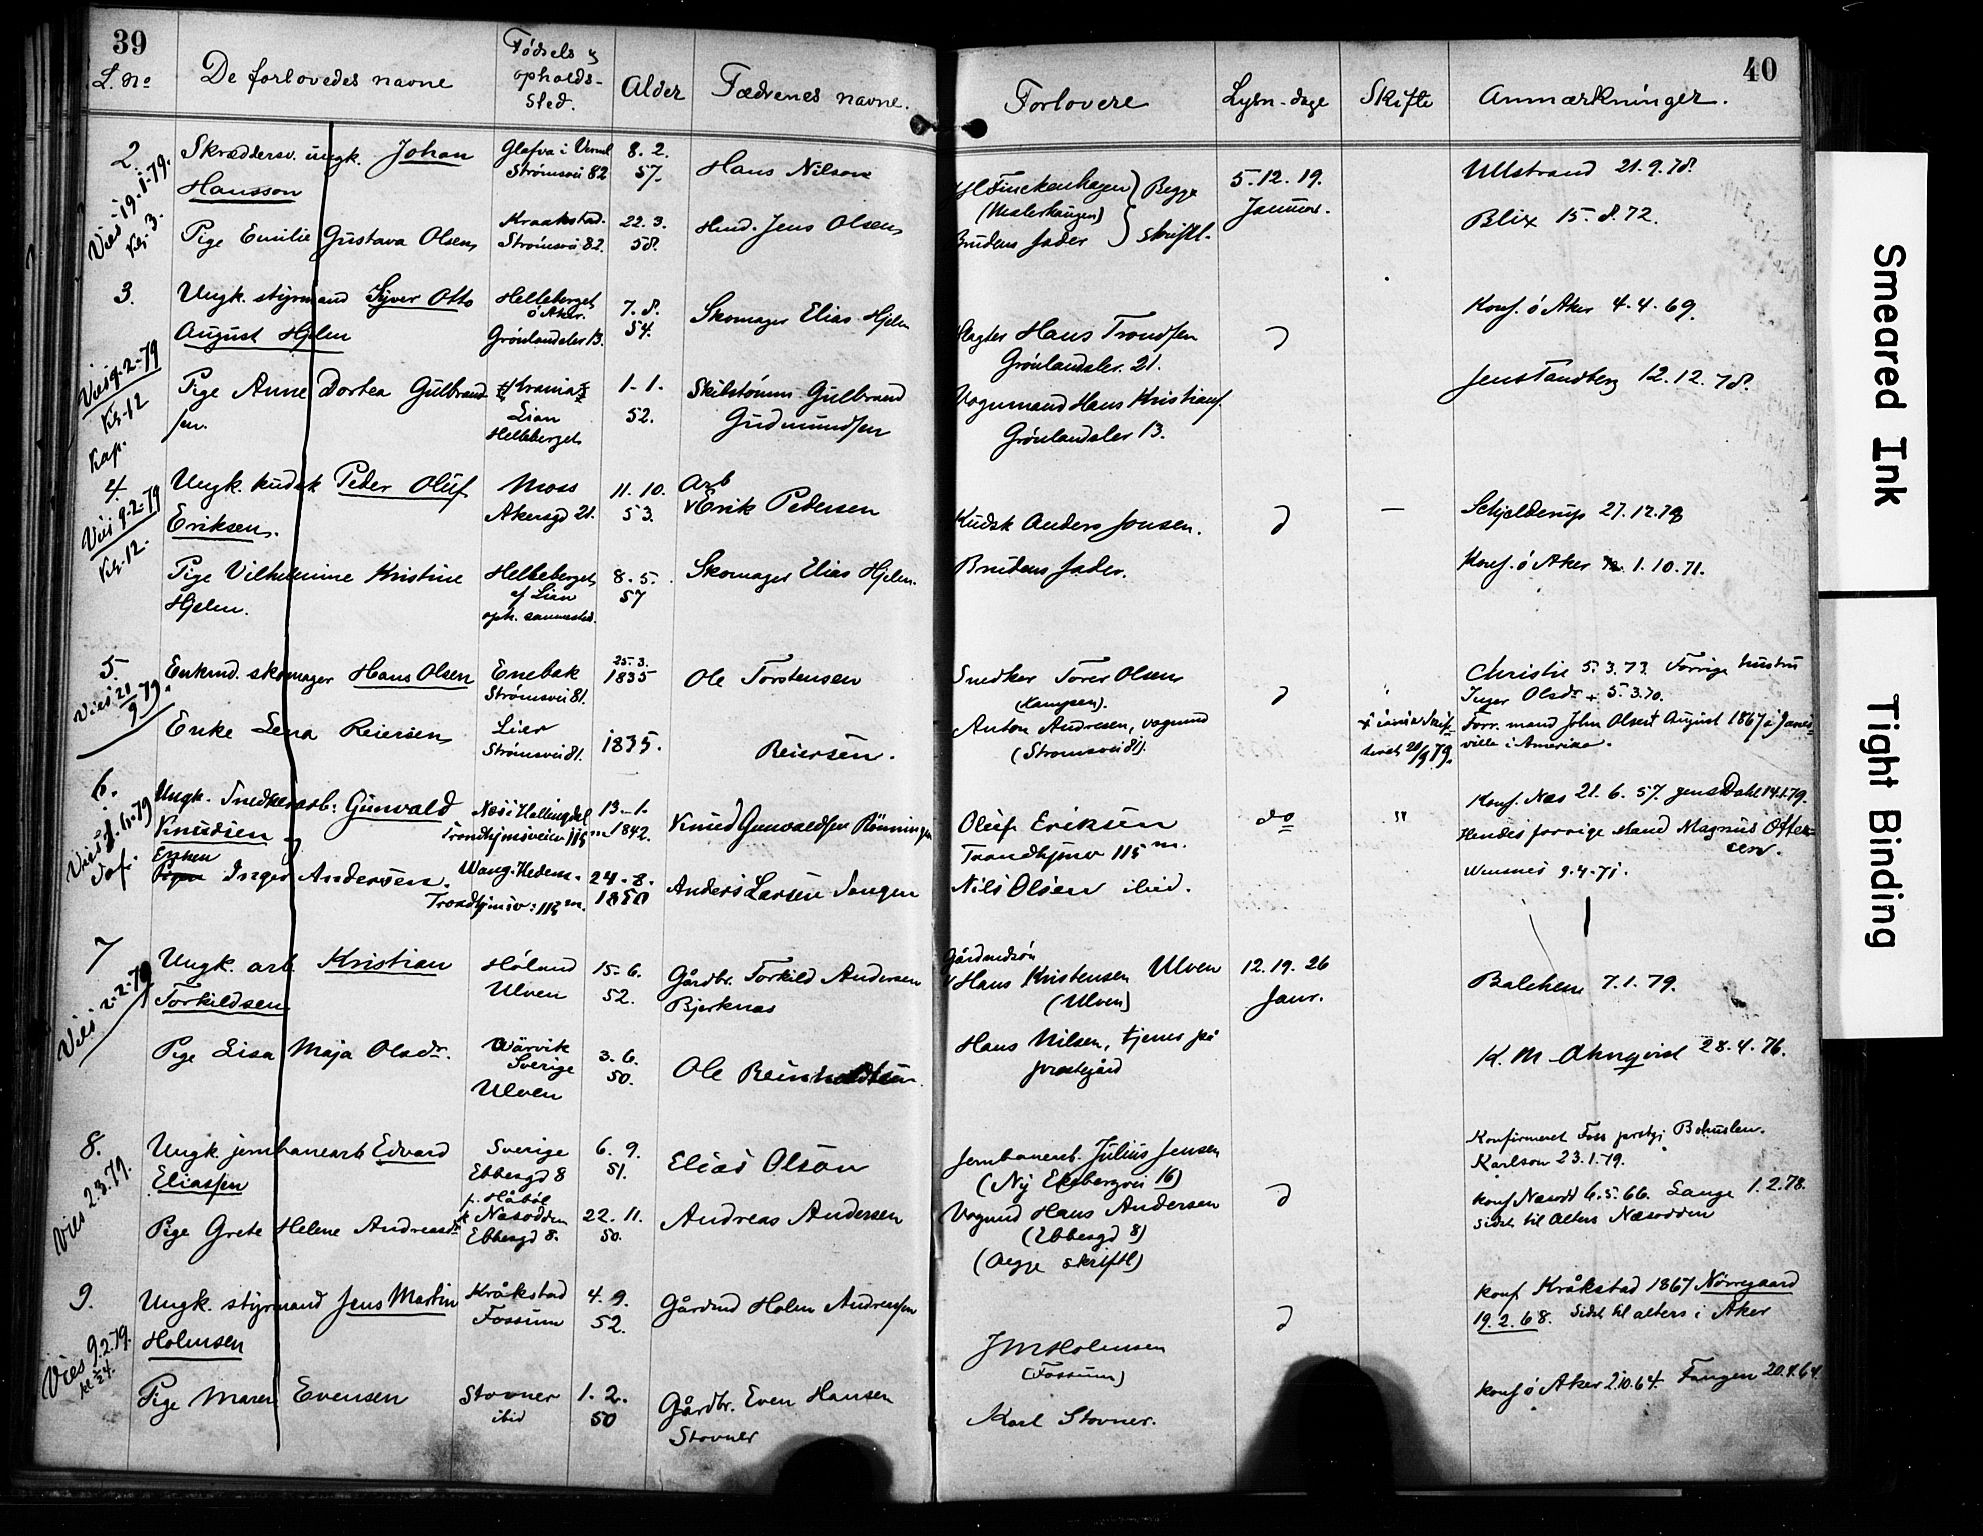 39
L. No
De forlovedes navne
Fødsels &
opholds-
sted.
Alder
Fædrenes navne.
Forlovere
Lysn-dage
Skifte
Anmærkninger.
40
2.
Vies 19-1-79.
Kl. 3.
Skræddersv. ungk. Johan
Hansson
Glafva i Verml
Strømsvei 82
8. 2.
57.
Hans Nilson
Finckenhagen
(Malerhaugen)
Begge
skriftl.
5. 12. 19.
Januar.
Ullstrand 21.9.78.
Pige Emilie Gustava Olsen
Kraakstad.
Strømsvei 82.
22. 3.
58.
Jens Olsen
Brudens fader
Blix 15. 8. 72.
3.
Vies 9-2-79
Kl. 12
Kap.
Ungk. styrmand Syver Otto
August Hjelm
Helleberget
ö Aker.
Grönlandsler 13.
7. 8.
54.
Skomager Elias Hjelm
Slagter Hans Trondsen
Grönlandsler. 21.
d
Konf. ö Aker 4. 4. 69.
Pige Anne Dortea Gulbrand-
sen.
Krania
Lian
Helleberget
1-1.
52.
Gulbrand
Gudmundsen
Vognmand Hans Kristians.
Grönlandsler 13.
Jens Tandberg 12.12.78.
4.
Vies 9-2-79
Kl. 12.
Ungk. kudsk Peder Oluf
Eriksen.
Moss
Akersgd 21.
11. 10.
53.
Arb
Erik Pedersen
Kudsk Anders Jonsen.
d
—
Schjelderup 27.12.78
Pige Vilhelmine Kristine
Hjelm.
Helleberget
af Lian
oph. sammested.
8. 5.
57
Skomager Elias Hjelm.
Brudens fader.
Konf. ö Aker 1. 10. 71.
5.
Vies 21/9 79.
Enkmd. skomager Hans Olsen
Enebak
Strømsvei 81.
25. 3.
1835
Ole Torstensen
Snedker Torer Olsen
(Kampen).
d
Christie 5. 3. 73. Forrige hustru
Inger Olsdr + 5. 3. 70.
Enke Lena Reiersen
Lier
Strømsvei 81.
1835.
Reiersen.
Anton Andresen, vognmd
(Strømsvei 81).
21/9 79.
Forr. mand John Olsen + August 1867 i Janes-
ville i Amerika.
6.
Ungk. Snedkerarb. Gunvald
Knudsen og
Næs i Hallingdal
Trondhjemsveien 115 m
13-1.
1842.
Knud Gunvaldsen Rønningen
Oluf Eriksen
Trondhjemsv 115 m.
do
"
Konf. Næs 21. 6. 57. Jens Dahl 14.1.79.
Hendes forrige Mand Magnus Otter-
sen.
Enken
Inger Andersen.
Wang. Hedem.
Trondhjemsv: 115 m.
24-8.
1850
Anders Larsen
Nils Olsen ibid.
9-4-71.
7
Vies 2-2-79
Ungk. arb. Kristian
Torkildsen
Høland
Ulven
15-6.
52.
Gårdbr. Torkild Andersen
Bjerknæs
Gårdmdsøn
Hans Kristensen Ulven
(Ulven)
12. 19. 26
Janr.
Balchen 7. 1. 79.
Pige Lisa Maja Olsdr.
Wärvik
Sverige
Ulven
3. 6.
50.
Ole
Hans Nilsen, tjener på
prestegård
K. M. Almqvist 28. 4. 76.
8.
Vies 2.3.79.
Ungk. jernbanearb Edvard
Eliassen
Sverige
Ebbesgd 8
6. 9.
51.
Elias Olson
Jernbanearb. Julius Jensen
(Ny Ekebergvei 16)
d
Konfirmeret Foss prstgj Bohuslen.
Karlson 23.1.79.
Pige Grete Helene Andreasdr
Næsodden
Ebbesgd 8.
22. 11.
50.
Andreas Andersen
Vognmd Hans Andersen
(Ebbesgd 8)
(Begge skriftl)
Konf Næsodd 6. 5. 66. Lange 1. 2. 78.
sidst til alters Næsodden
9.
Vies 9.2.79.
Ungk. styrmand Jens Martin
Holmsen
Kråkstad
Fossum
4. 9.
52.
Gårdmd Holm Andreassen
J M Holmsen
(Fossum)
d
Konf Kråkstad 1867 Nörregaard
19. 2. 68. Sidst til alters i Aker
Pige Maren Evensen
Stovner
ibid
1. 2.
50
Gårdbr. Even Hansen
Stovner
Karl Stovner.
Konf ö Aker 2.10.64. Fangen 20.4.64
Smeared Ink
Tight Binding